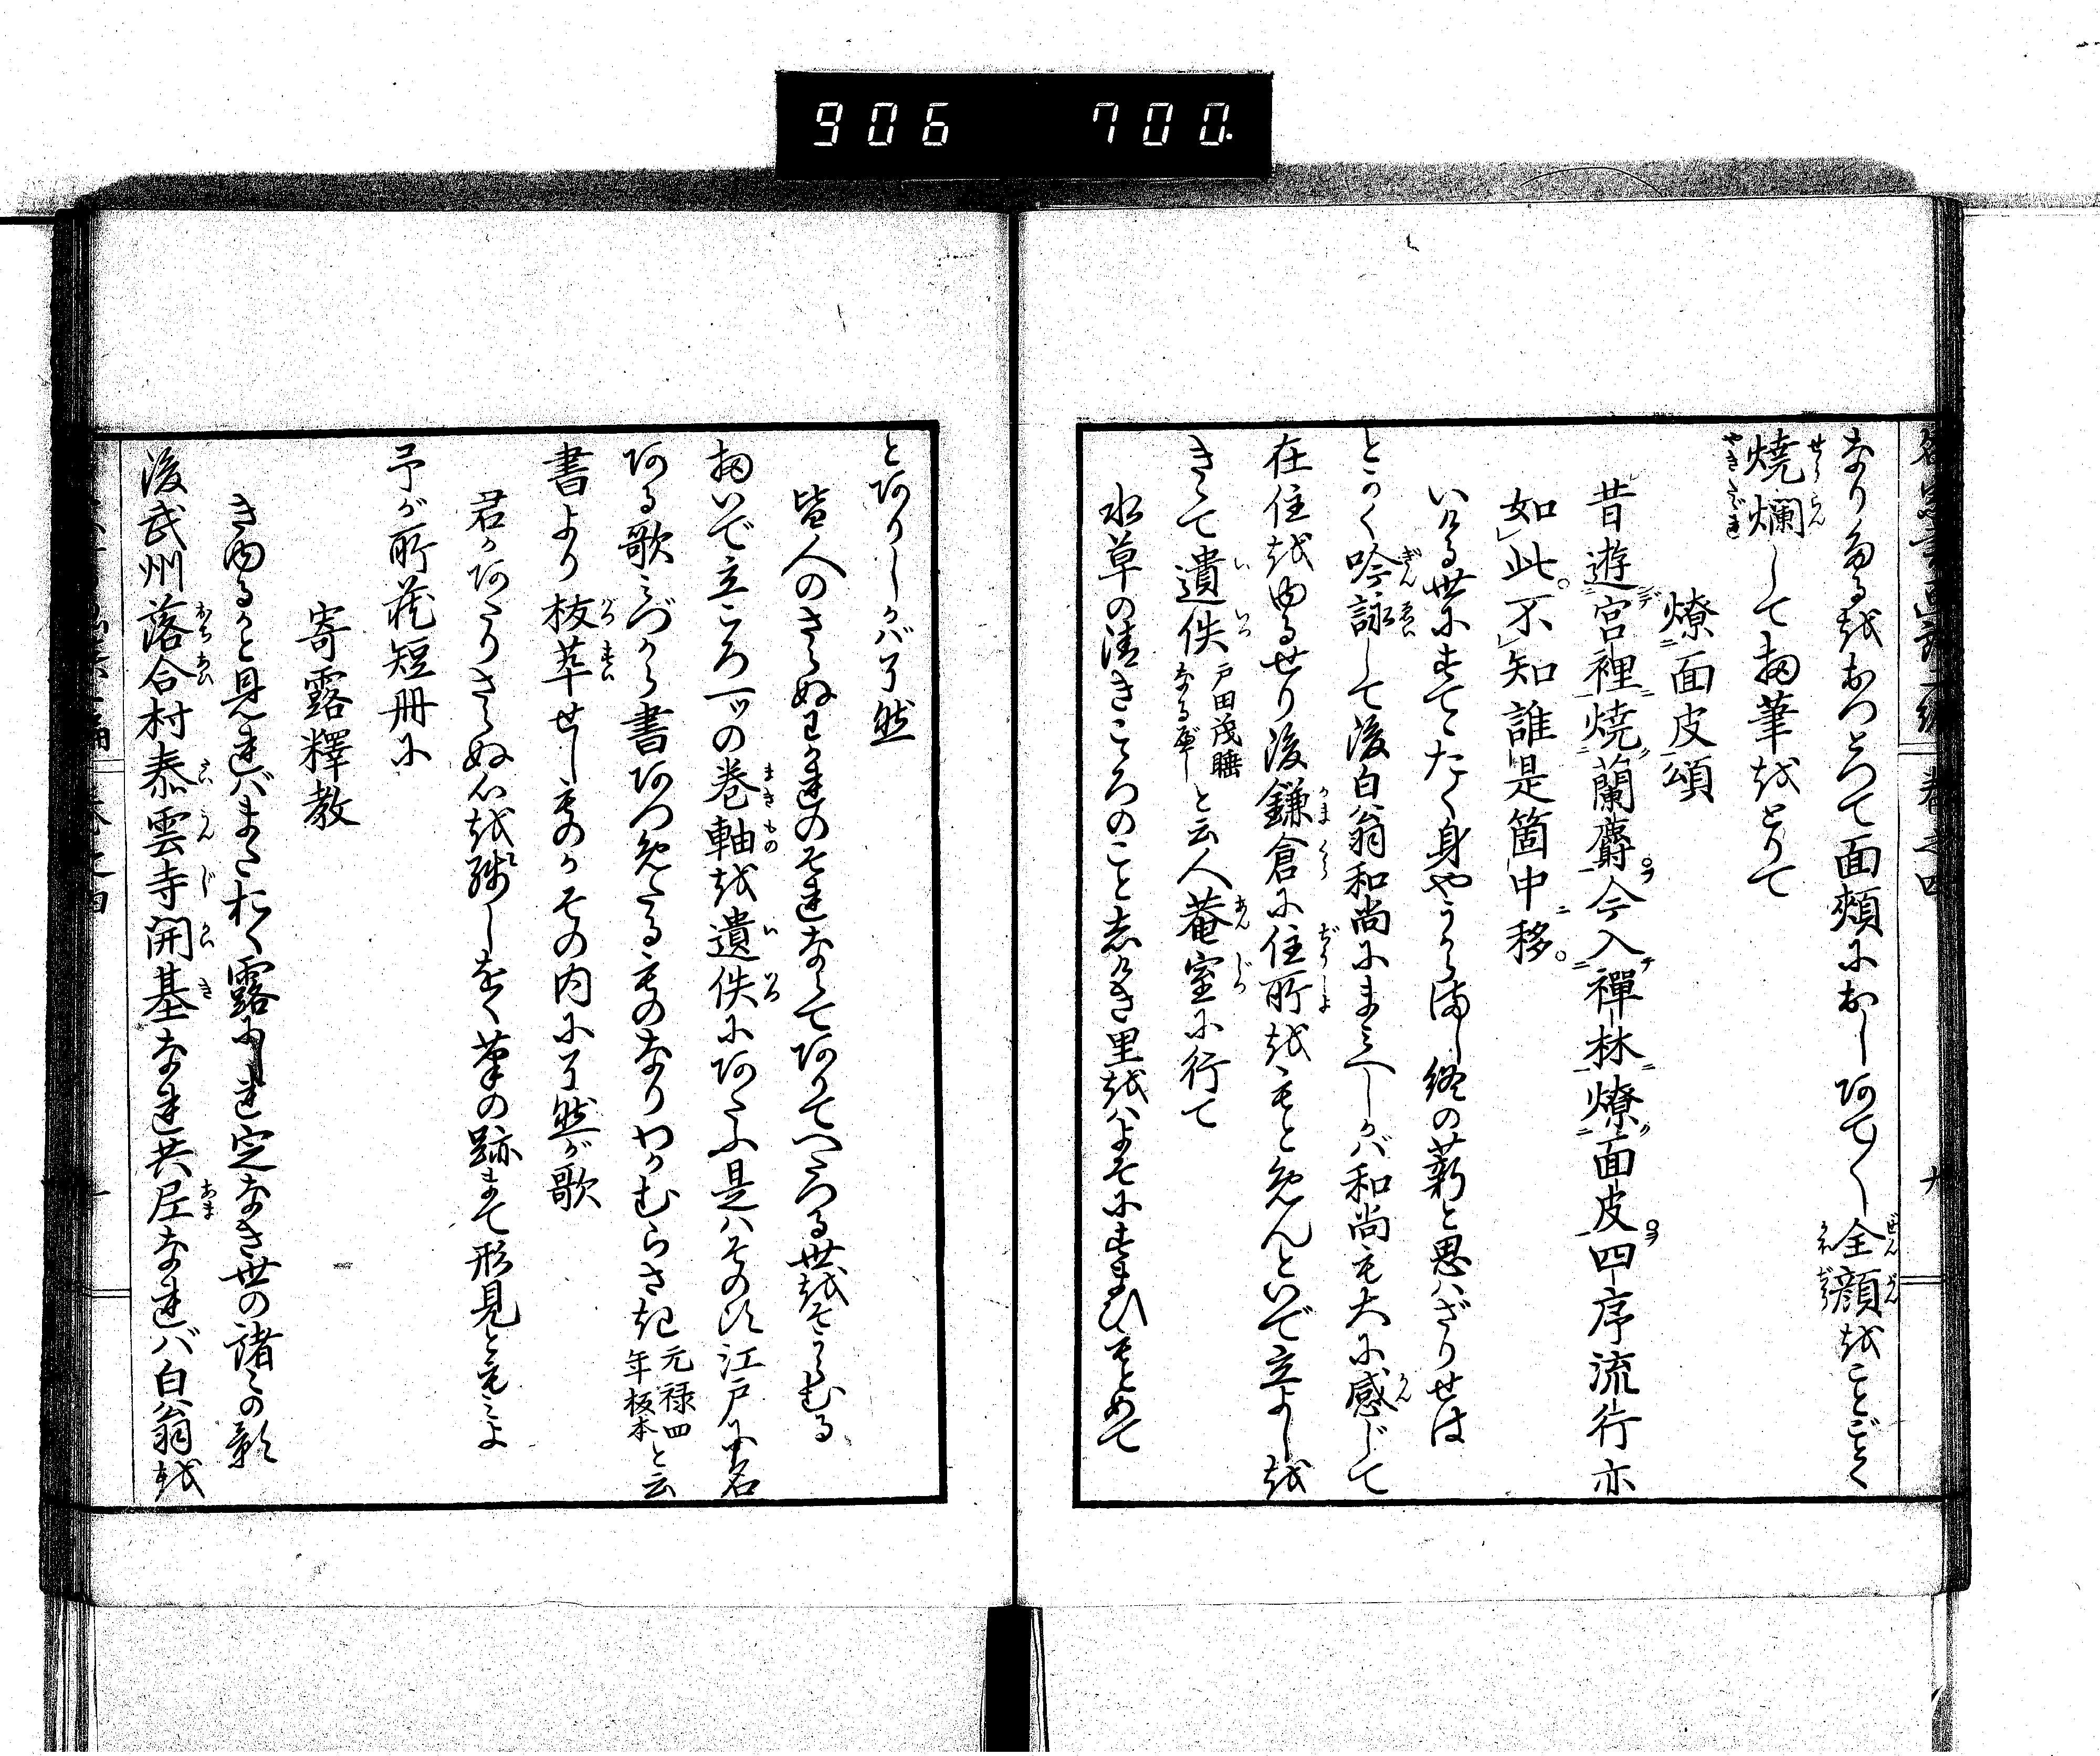 906 700.
なりたるをおつとつて面頬におしあて〳〵全顔をことごとく
焼爛して扨筆をとりて
燎面皮頌
昔遊宮裡焼蘭麝今入禪林燎面皮四序流行亦
如此不知誰是箇中移
いける世にすてゝたく身やうからまし終の薪と思ハざりせは
とかく吟詠して後白翁和尚にまミへしかバ和尚も大に感じて
在住をゆるせり後鎌倉に住所をもとめんといで立よしを
きゝて遺佚戸田茂睡なるべしと云人菴室に行て
水草の清きこゝろのことしげき里をはよそにすまひもとめて
とありしかバ了然
皆人のさらぬわかれのそれならてありてへたつる世をそうらむる
扨いで立ころ一ツの巻軸を遺佚にあたふ是ハその頃江戸に名
ある歌ミづから書あつめたるものなりわかむらさき元禄四年板本と云
書より抜萃せしものかその内に了然が歌
君かあたりさらぬ心を残しをく筆の跡まて形見ともミよ
予が所蔵短冊に
寄露釋教
きゆるかと見れバまたおく露にしれ定なき世の諸の影
後武州落合村泰雲寺開基なれ共尼なれバ白翁を